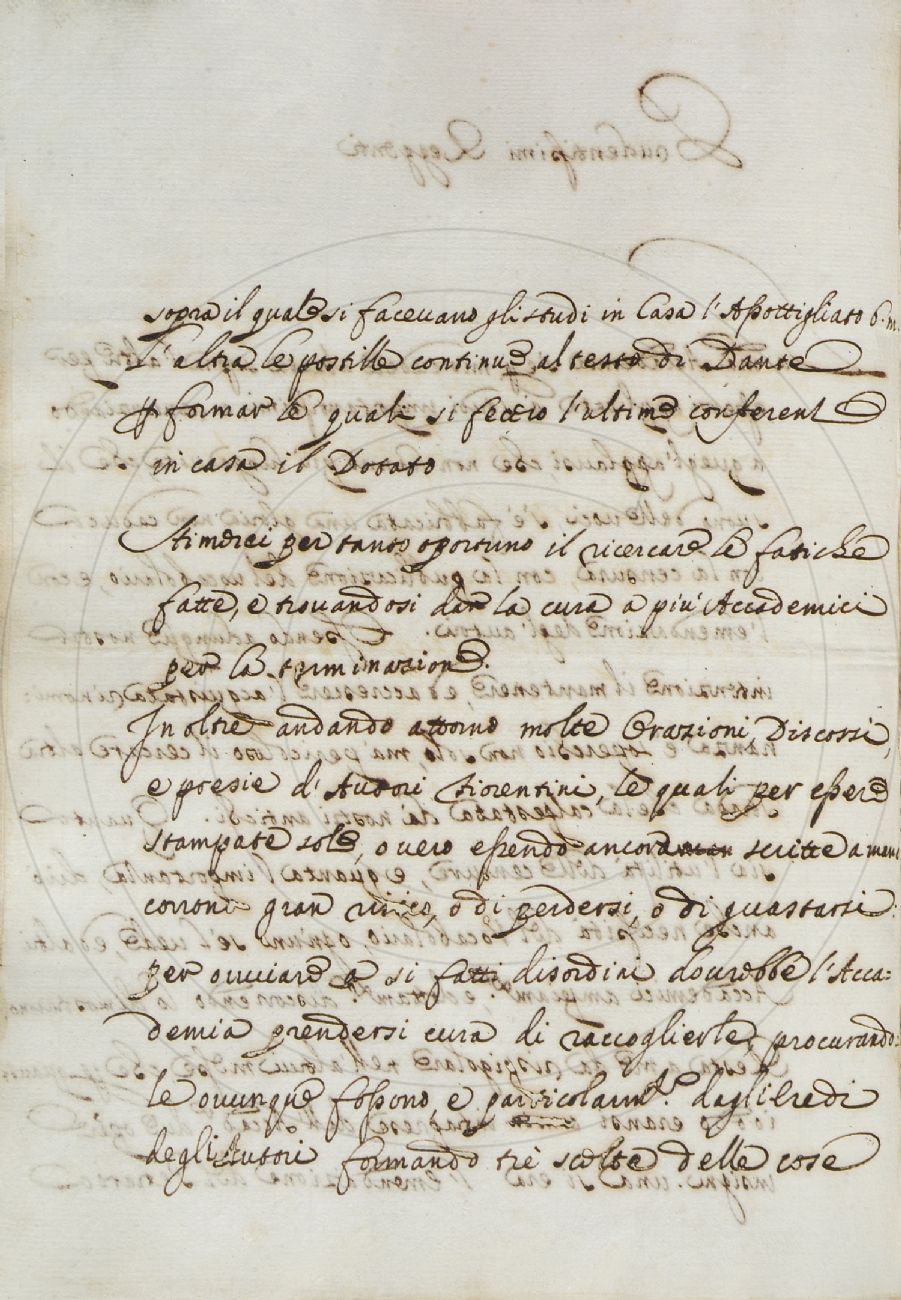 sopra il quale si facevano gli studi in Casa l'Assottigliato b. m.
L'altra le postille continue al testo di Dante
p formar le quali si fecero l'ultime conferenze
in casa il Dotato
Stimerei per tanto oportuno il ricercare le fatiche
fatte, e trovandosi dar la cura a più Accademici
per la terminazione.
In oltre andando attorno molte Orazioni, Discorsi,
e poesie d'Autori Fiorentini, le quali per essere
stampate sole, o vero essendo ancora scritte a mano
corrono gran risico, o di perdersi, o di guastarsi:
per ovviare a si fatti disordini dovrebbe l'Acca=
demia prendersi cura di raccoglierle, procurando=
le ovunque fossono, e particolarmte. dagli Eredi
degli Autori formando tre scelte delle cose